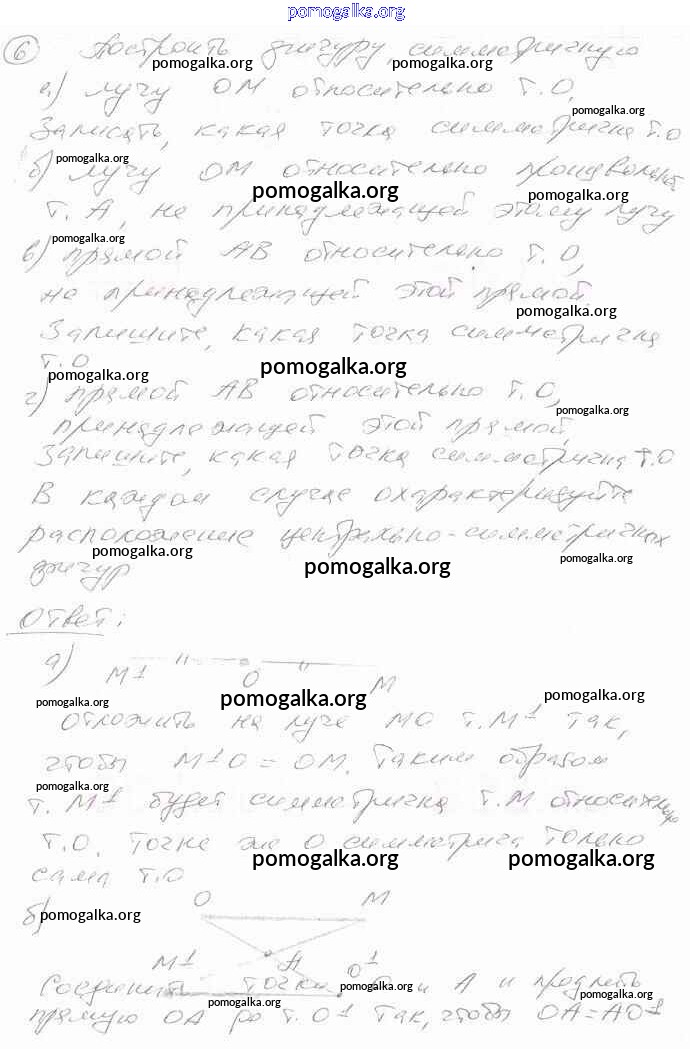 pomogalka.org
6 Построить фигуру, симметричную
pomogalka.org pomogalka.org
а) лучу ОМ относительно т.О,
pomogalka.org
Записать, какая точка симметрична т.О
pomogalka.org
б) лучу ОМ относительно
pomogalka.org pomogalka.org
т. А, не принадлежащей этому лучу
pomogalka.org
в) прямой АВ относительно т. О,
не принадлежащей этой прямой.
pomogalka.org
Запишите, какая точка симметрична
т.О
pomogalka.org pomogalka.org
г) прямой АВ относительно т.О,
pomogalka.org
принадлежащей этой прямой,
Запишите, какая точка симметрична т.О
В каждом случае охарактеризуйте
расположение центрально-симметричных
pomogalka.org pomogalka.org pomogalka.org
фигур
Ответ:
а)
М1 О М
pomogalka.org pomogalka.org pomogalka.org
отложить на луче МО т.М1 так,
чтобы М1О = ОМ. Таким образом
pomogalka.org
т. М1 будет симметрична т.М относительно
т.О. Точке же О симметрична только
pomogalka.org pomogalka.org
сама т.О
б) О М
pomogalka.org
М1 А О1
Соединить точки О и А и продлить
pomogalka.org pomogalka.org pomogalka.org
прямую ОА до т.О1 так, чтобы ОА=АО1